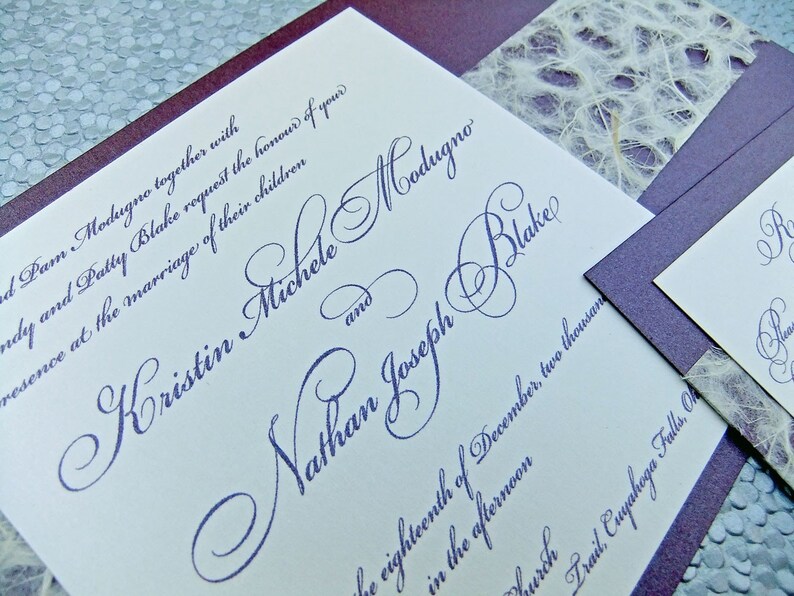 Pam Modugno together with
and Patty Blake request the honour of your
presence at the marriage of their children
Kristin Michele Modugno
and
Nathan Joseph Blake
the eighteenth of December, two thousand
in the afternoon
Church
Trail, Cuyahoga Falls,